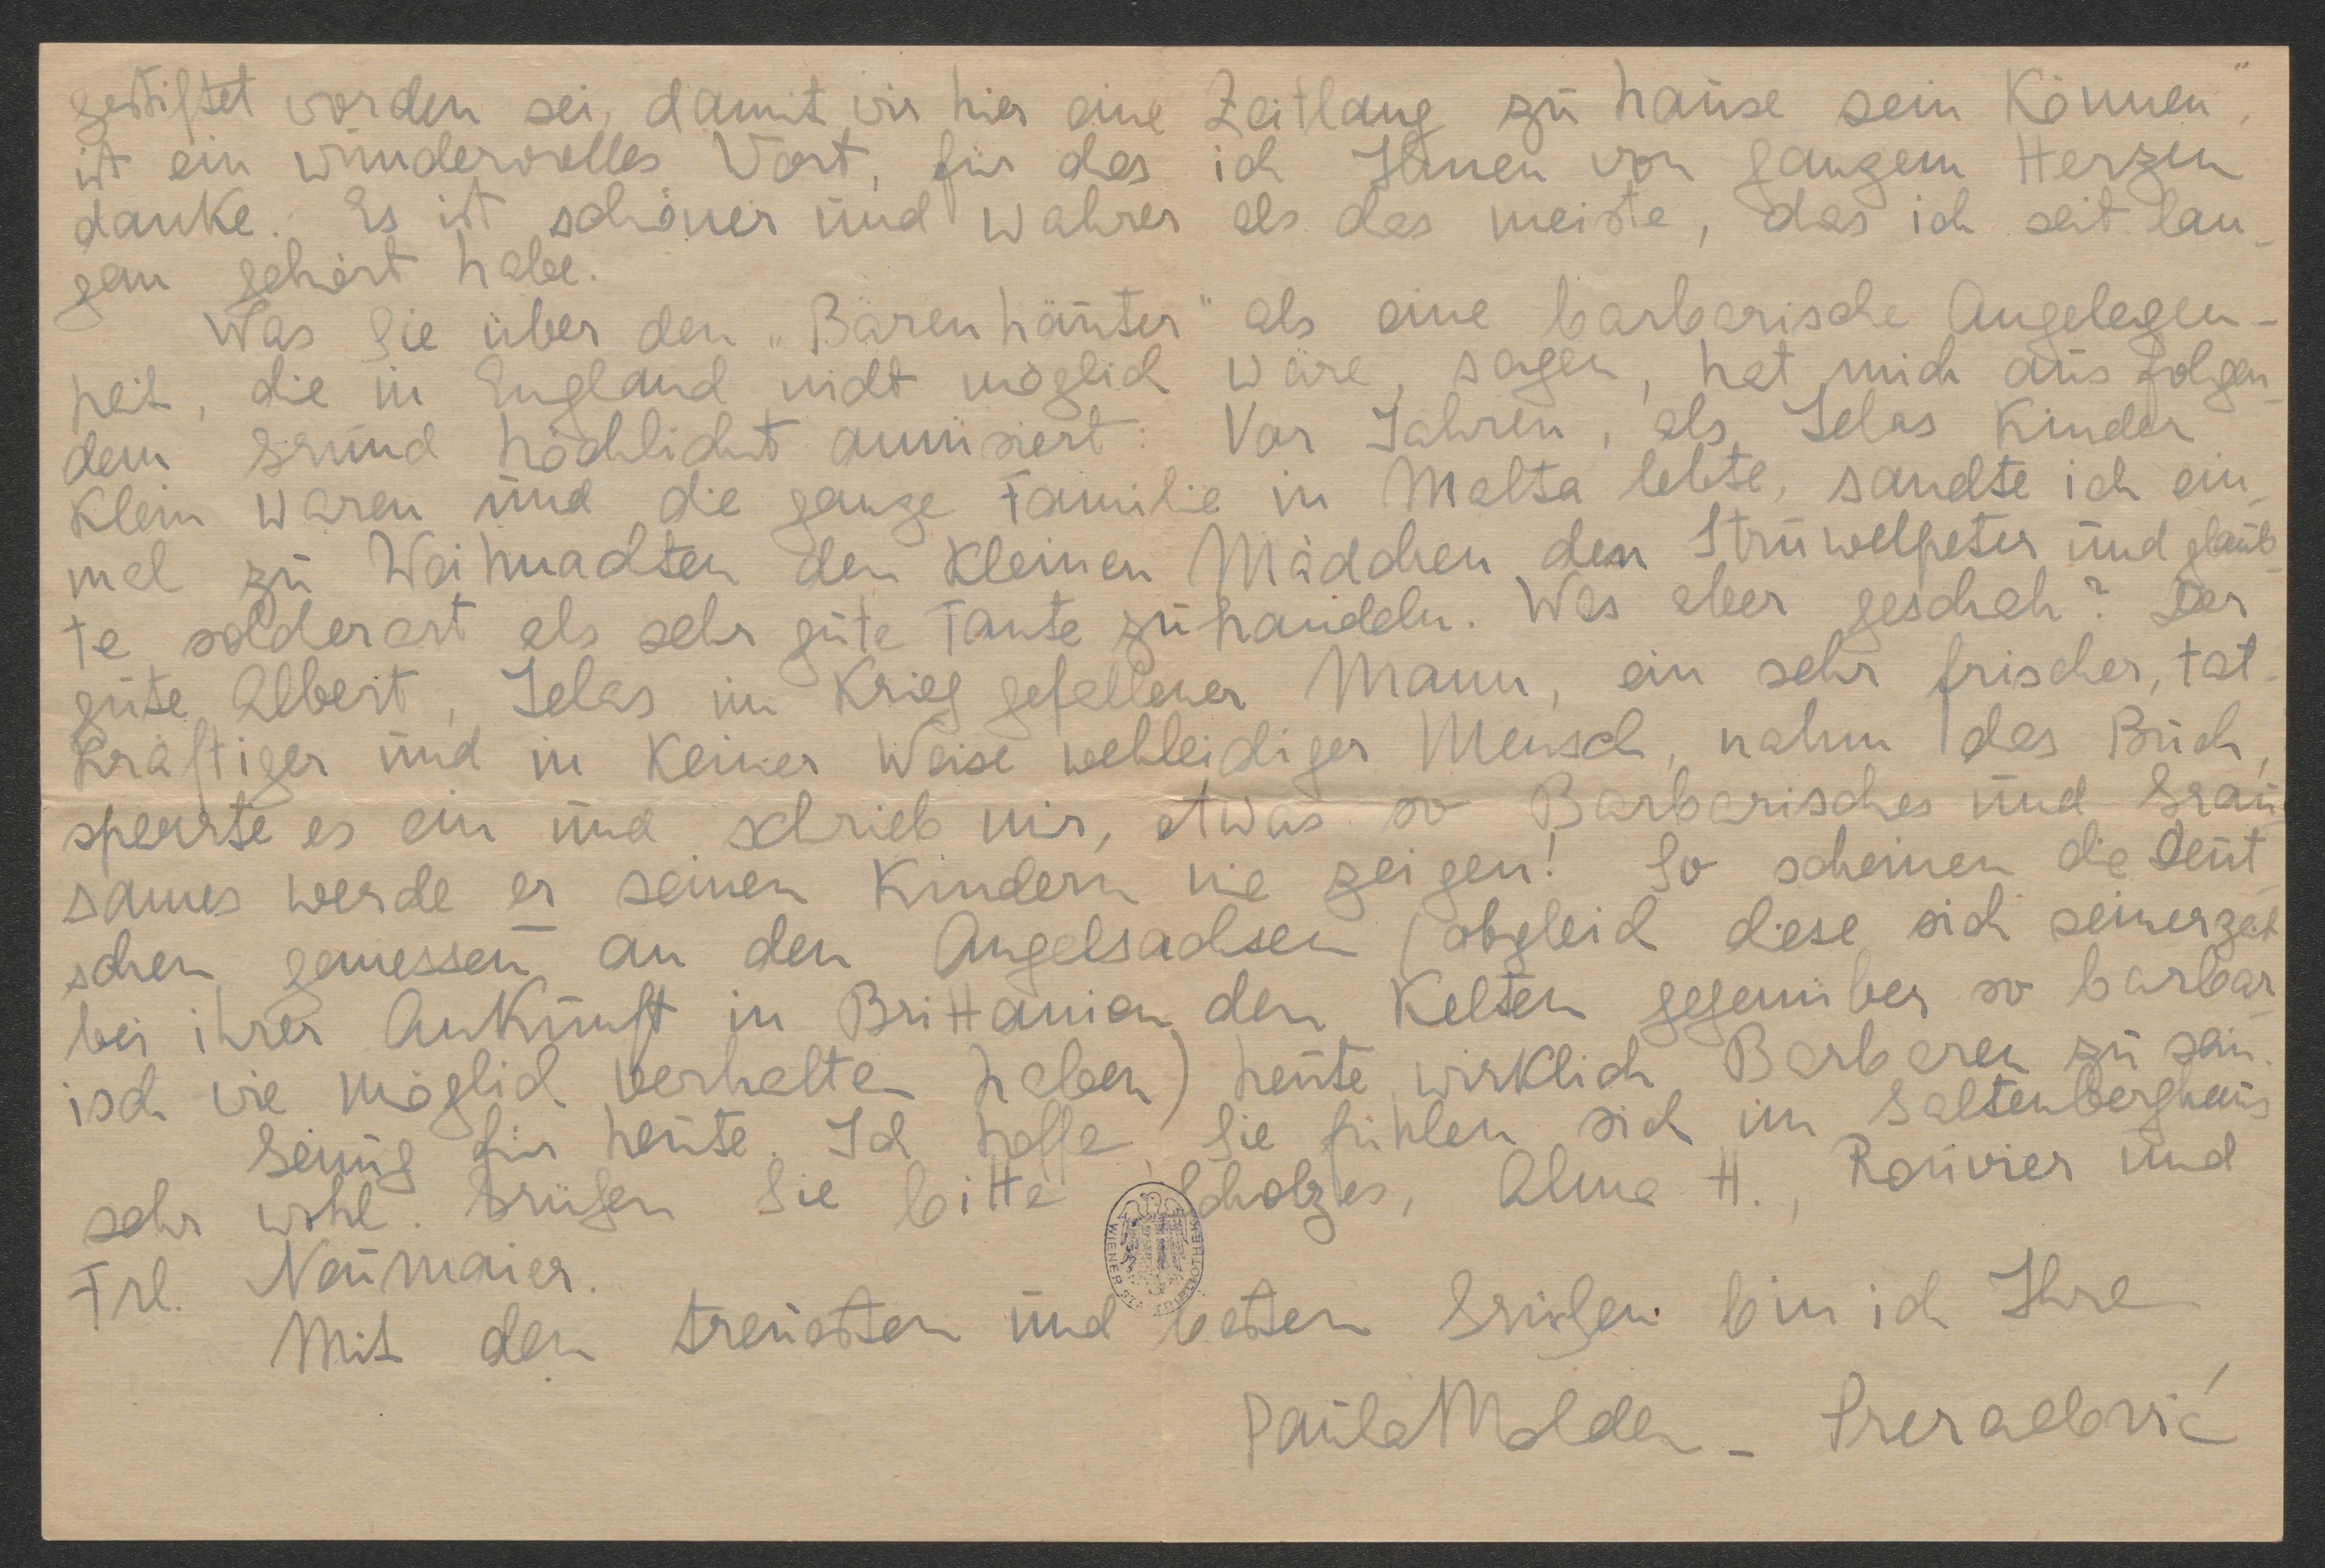 gestiftet worden sei, damit wir hier eine Zeitlang zu hause sein können“,
ist ein wundervolles Wort, für das ich Ihnen von ganzem Herzen
danke. Es ist schöner und wahrer als das meiste, das ich seit lan-
gem gehört habe.
Was Sie über den „Bärenhäuter“ als eine barbarische Angelegen-
heit, die in England nicht möglich wäre, sagen, hat mich aus folgen-
dem Grund höchlichst amüsiert: Vor Jahren, als Jelas Kinder
klein waren und die ganze Familie in Malta lebte, sandte ich ein-
mal zu Weihnachten den kleinen Mädchen den Struwelpeter und glaub-
te solderart als sehr gute Tante zu handeln. Was aber geschah? Der
gute Albert, Jelas im Krieg gefallener Mann, ein sehr frischer, tat-
kräftiger und in keiner Weise wehleidiger Mensch, nahm das Buch,
sperrte es ein und schrieb mir, etwas so Barbarisches und Grau-
sames werde er seinen Kindern nie zeigen! So scheinen die Deut-
schen gemessen an den Angelsachsen (obgleich diese sich seinerzeit
bei ihrer Ankunft in Brittanien den Kelten gegenüber so barbar-
isch wie möglich verhalten haben) heute wirklich Barbaren zu sein.
Genug für heute. Ich hoffe, Sie fühlen sich im Saltenberghaus
sehr wohl. Grüßen Sie bitte Scholzes, Alma H., Rouvier und
Frl. Naumaier.
Mit den treuesten und besten Grüßen bin ich Ihre
Paula Molden - Preradović
WIENER